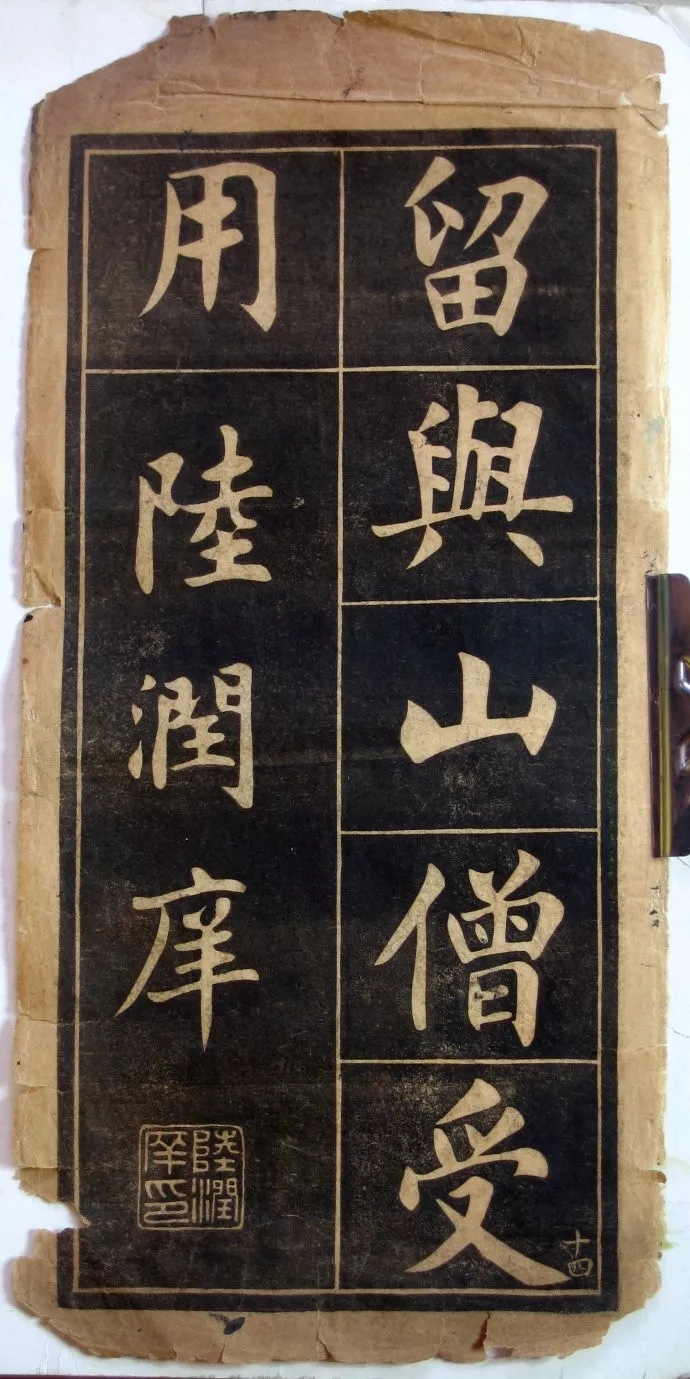 留與山僧受
十四
用
陸潤庠
陸潤庠印